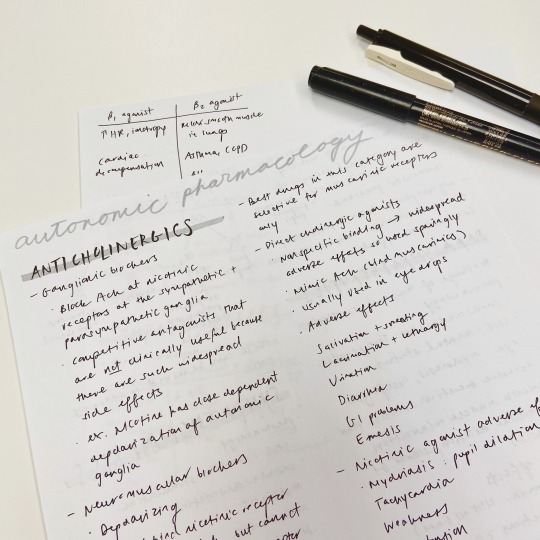 β1 agonist
β2 agonist
↑ HR, inotropy
relax smooth muscle
in lungs
cardiac
decompensation
Asthma, COPD
autonomic pharmacology
ANTICHOLINERGICS
- Ganglionic blockers
· Block Ach at nicotinic
receptors at the sympathetic +
parasympathetic ganglia
· competitive antagonists that
are not clinically useful because
there are such widespread
side effects
· ex. Nicotine has dose dependent
depolarization of autonomic
ganglia
- Neuromuscular blockers
· Depolarizing
nicotinic receptor
but cannot
- Best drugs in this category are
selective for muscarinic receptors
only
- Direct cholinergic agonists
· Nonspecific binding → widespread
adverse effects so used sparingly
· Mimic Ach (bind muscarinics)
· Usually used in eye drops
· Adverse effects
Salivation + sweating
Lacrimation + lethargy
Urination
Diarrhea
GI problems
Emesis
- Nicotinic agonist adverse
· Mydriasis : pupil dilation
Tachycardia
Weakness